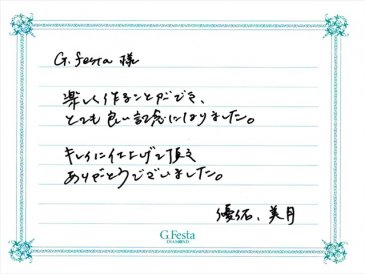 G.festa 様
楽しく作ることができ、
とても良い記念になりました。
キレイに仕上げて頂き
ありがとうございました。
優佑、美月
G.Festa
DIAMOND